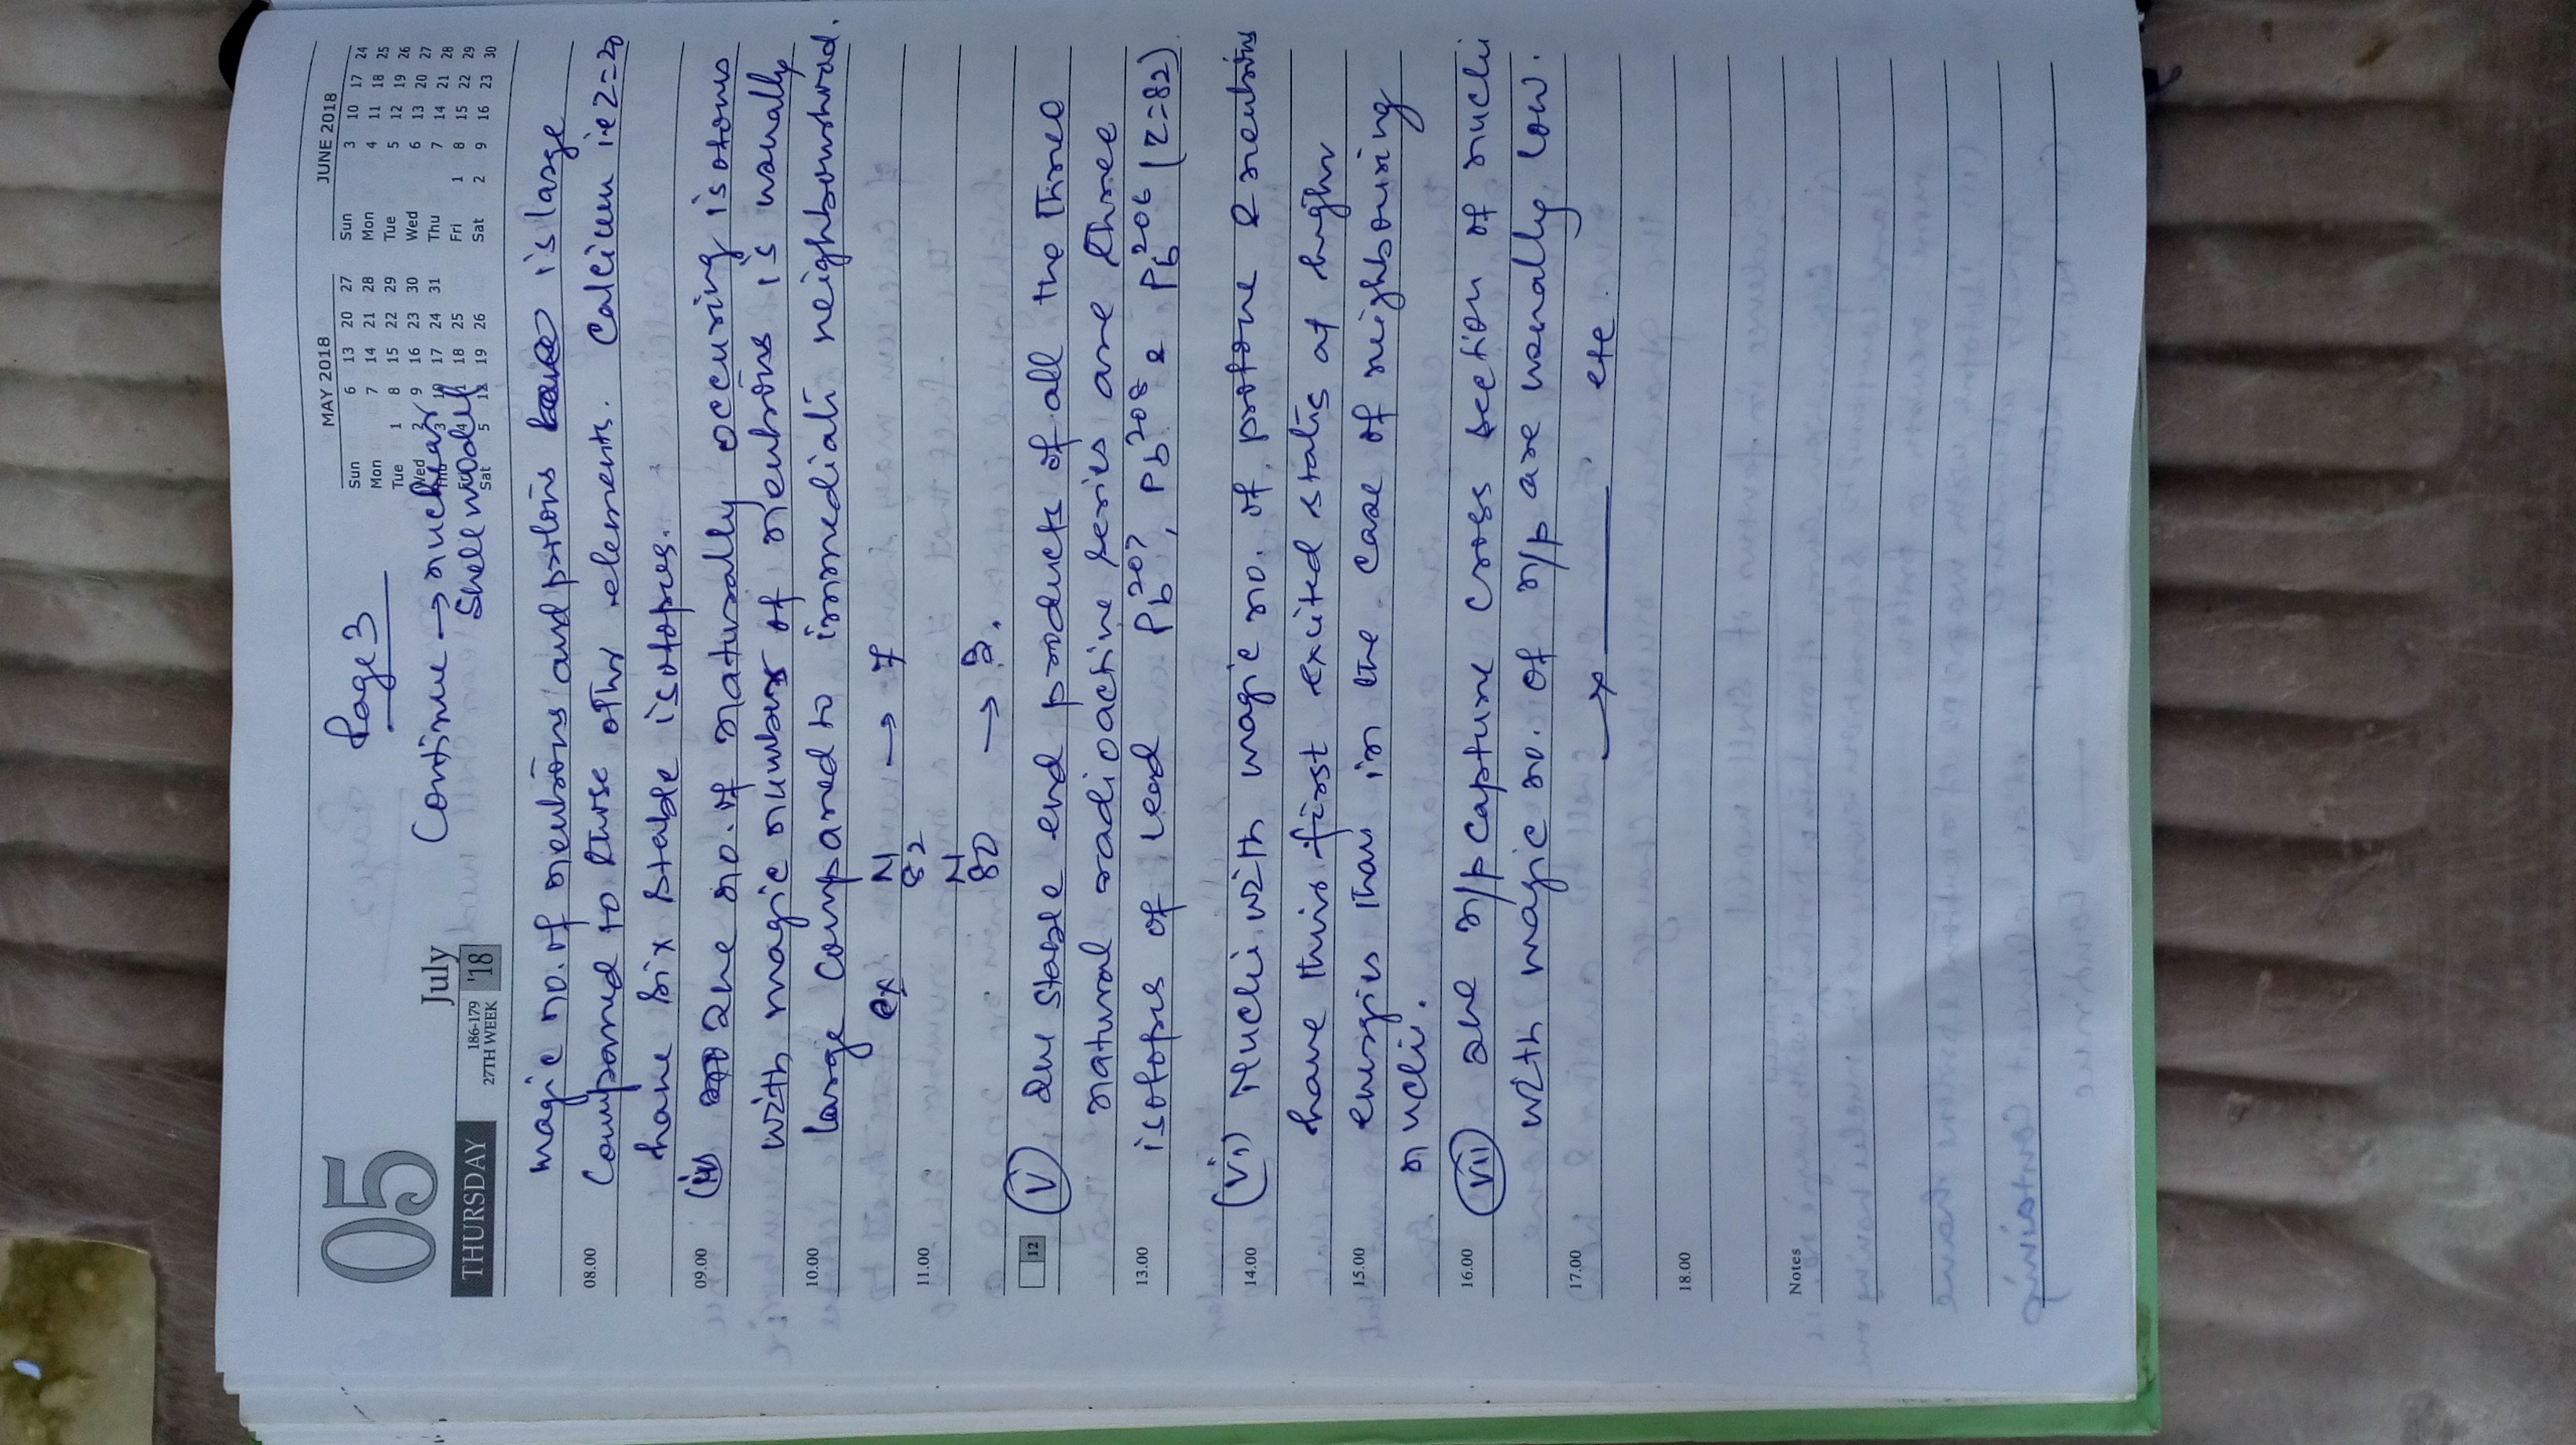 05
July
THURSDAY
186-179
27TH WEEK
'18
Page 3
Continue → nuclear
Shell model
MAY 2018
Sun 6 13 20 27
Mon 7 14 21 28
Tue 1 8 15 22 29
Wed 2 9 16 23 30
Thu 3 10 17 24 31
Fri 4 11 18 25
Sat 5 12 19 26
JUNE 2018
Sun 3 10 17 24
Mon 4 11 18 25
Tue 5 12 19 26
Wed 6 13 20 27
Thu 7 14 21 28
Fri 1 8 15 22 29
Sat 2 9 16 23 30
magic no. of neutrons and protons is large
08.00 Compared to these other elements. Calcium i.e Z=20
have six stable isotopes.
09.00 (iv) The no. of naturally occuring isotons
with magic numbers of neutrons is usually
10.00 large compared to immediate neighbourhood.
ex N → 7
82
11.00
N → 5.
80
12 (V) The stable end products of all the three
natural radioactive series are three
13.00 isotopes of lead Pb207, Pb208 & Pb206 (Z=82).
14.00 (Vi) Nuclei with magic no. of protons & neutrons
have their first excited states at higher
15.00 energies than in the case of neighbouring
nuclei.
16.00 (Vii) The n/p capture cross section of nuclei
with magic no. of n/p are usually low.
17.00 x etc.
18.00
Notes